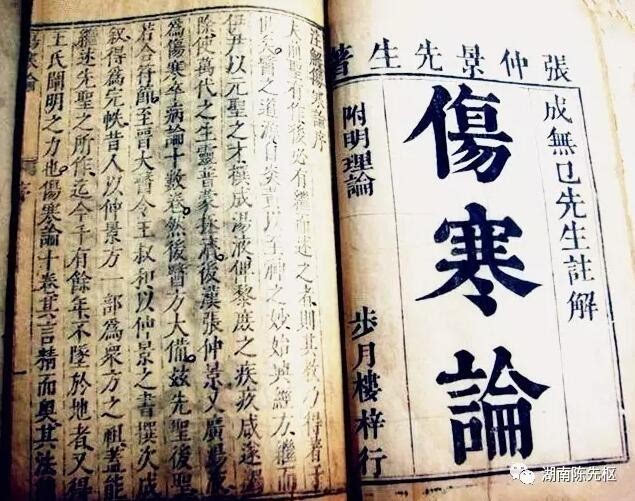 張仲景先生著
成無已先生註解
傷寒論
附明理論
步月樓梓行
注解傷寒論序
夫前聖有作後必有繼而述之者則其教乃得著于
世矣醫之道源自炎黃以至神之妙始興經方繼而
伊尹以元聖之才撰成湯液俾黎庶之疾疢咸遂蠲
除使萬代之生靈普蒙拯濟後漢張仲景又廣湯液
爲傷寒卒病論十數卷然後醫方大備茲先聖後聖
若合符節至晉太醫令王叔和以仲景之書撰次成
叙得爲完帙昔人以仲景方一部爲衆方之祖盖能
繼述先聖之所作迄今千有餘年不墜於地者又得
王氏闡明之力也傷寒論十卷其言精而奥其法簡
傷寒論
湖南陈先枢